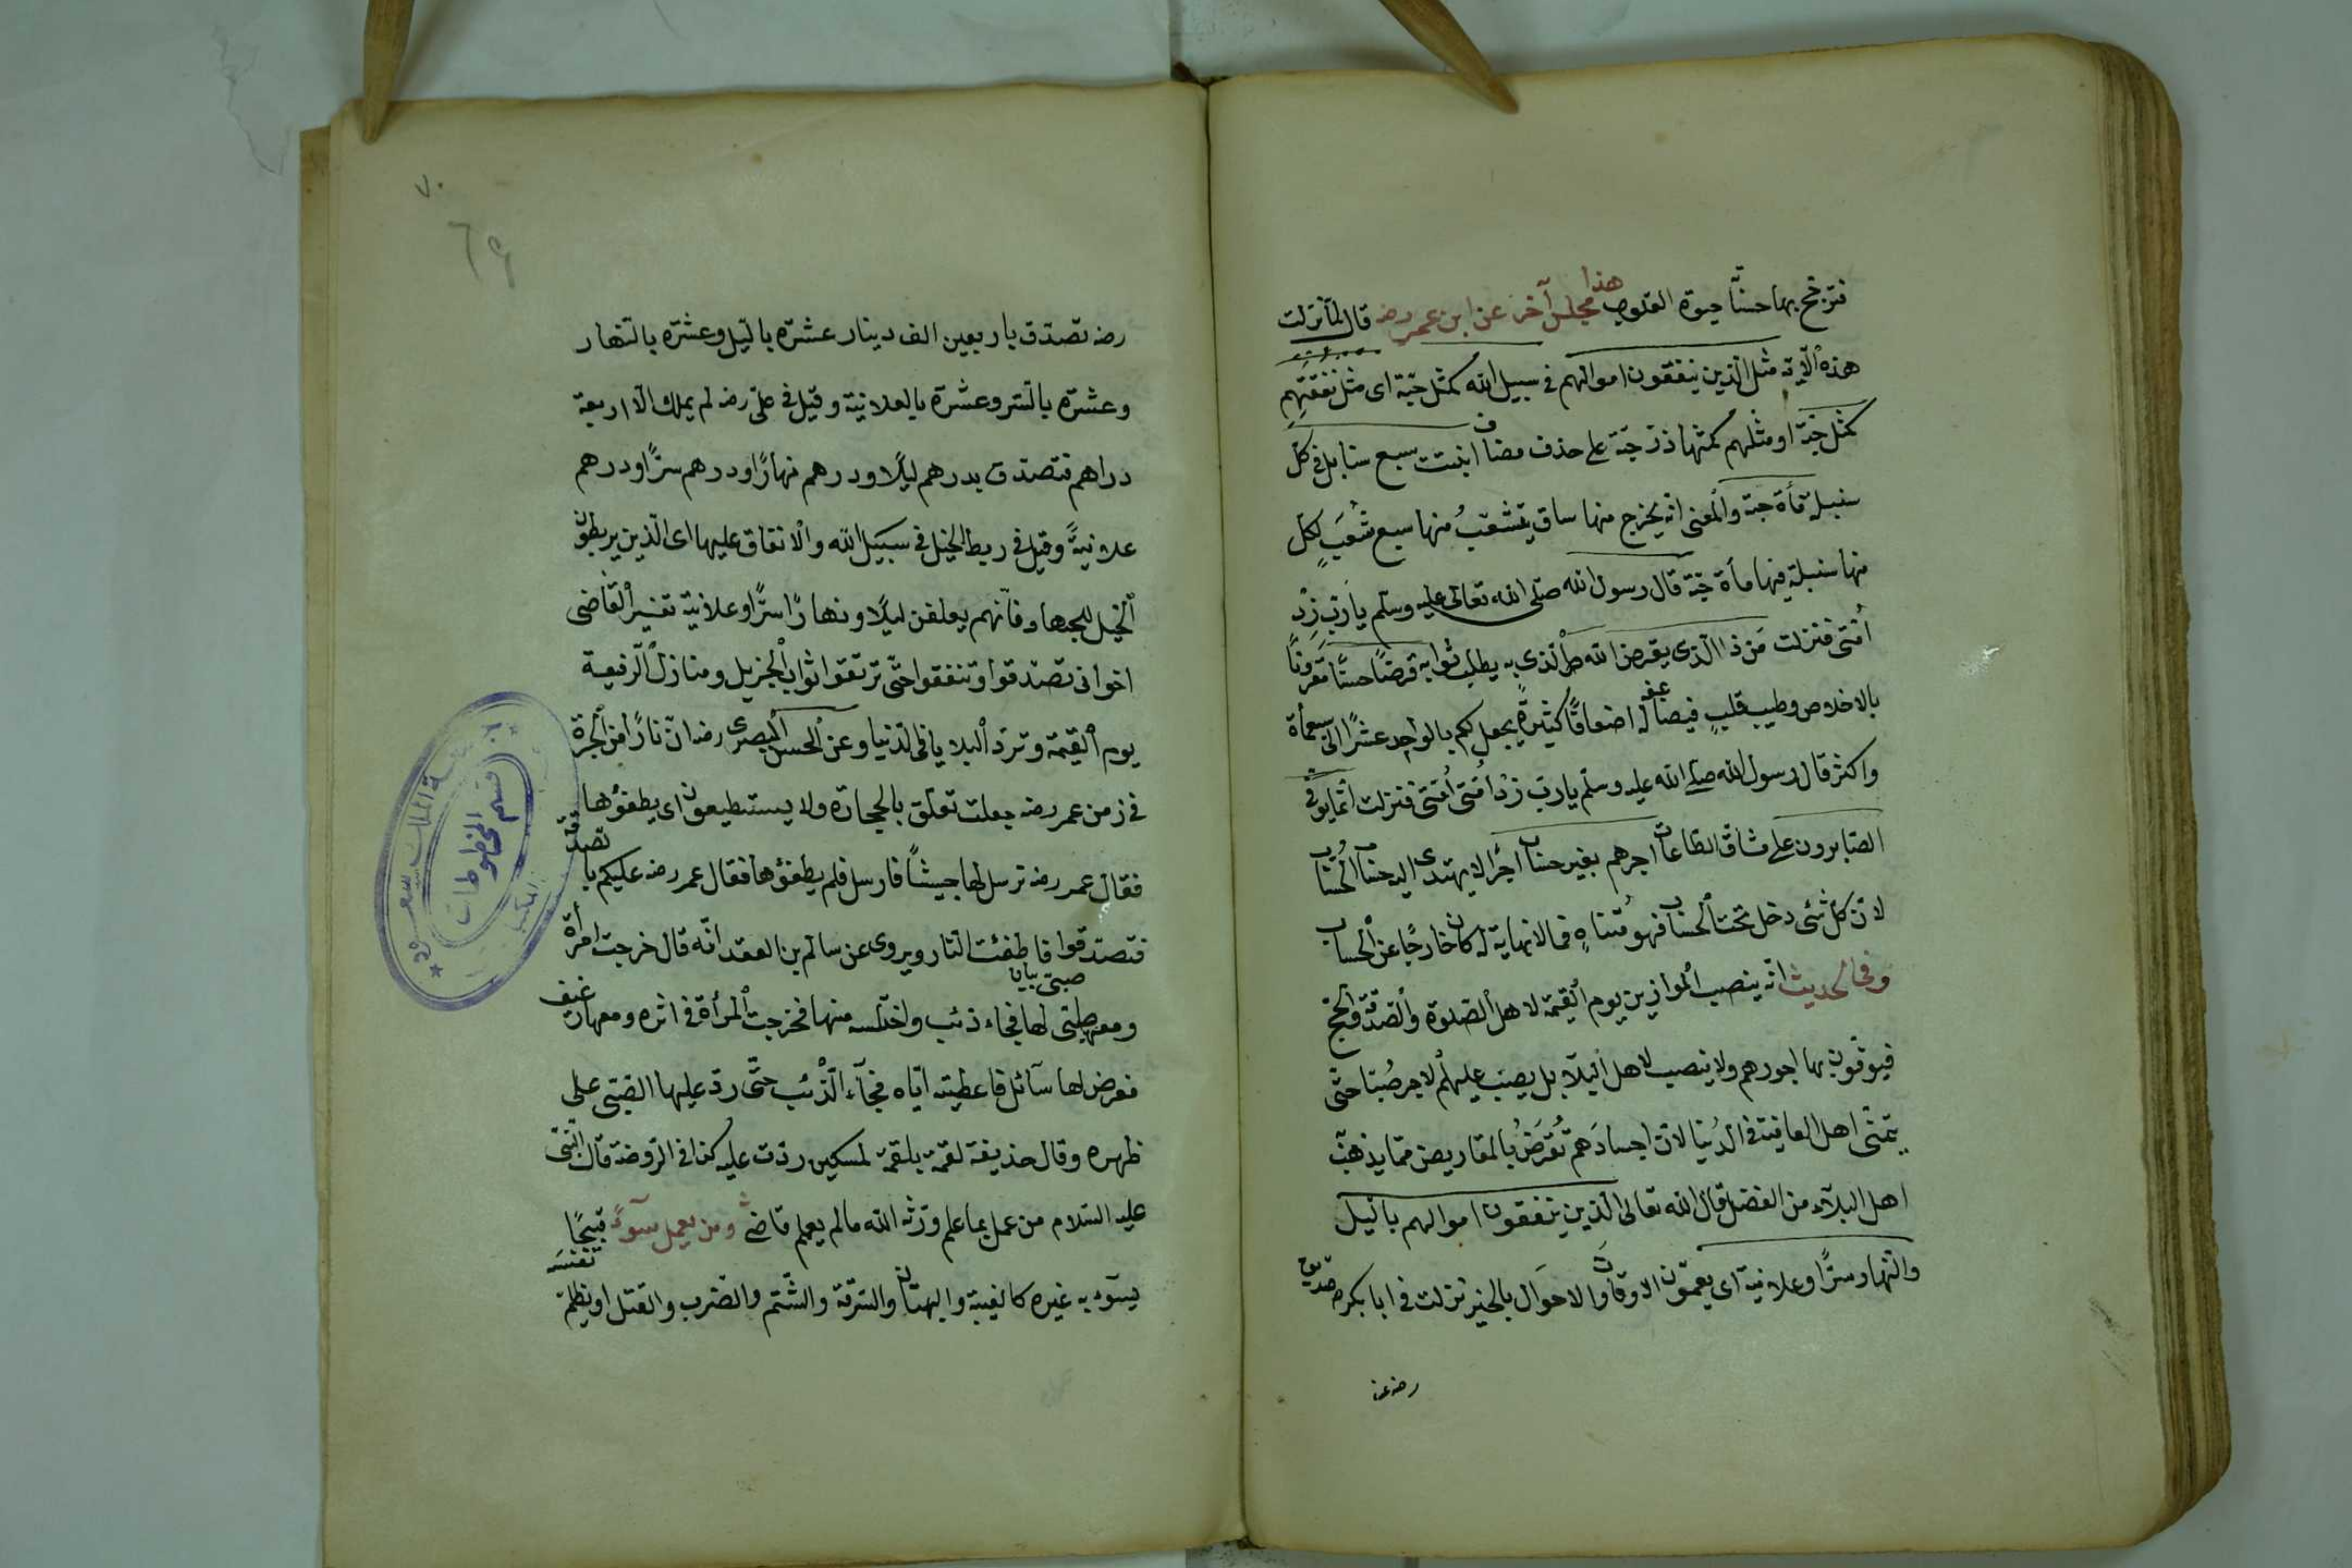 فترجح بها حسنا حيوة القلوب هذا مجلس آخر عن ابن عمر رضه قال لما نزلت
هذه الآية مثل الذين ينفقون اموالهم فى سبيل الله كمثل حبة اى مثل نفقتهم
كمثل حبة او مثلهم كمثل باذر حبة على حذف مضاف انبتت سبع سنابل فى كل
سنبلة مأة حبة والمعنى انه يخرج منها ساق يتشعب منها سبع شعب لكل
منها سنبلة فيها مأة حبة قال رسول الله صلى الله تعالى عليه وسلم يا رب زد
امتى فنزلت من ذا الذى يقرض الله الذى به يطلب ثوابه قرضا حسنا مقرونا
بالاخلاص وطيب قلب فيضاعفه له اضعافا كثيرة يجعل لكم بالواحد عشرا الى سبعمأة
واكثر قال رسول الله صلى الله عليه وسلم يا رب زد امتى امتى فنزلت انما يوفى
الصابرون على مشاق الطاعات اجرهم بغير حساب اجرا لا يهتدى اليه حساب الحساب
لان كل شئ دخل تحت الحساب فهو متناه فما لا نهاية له كان خارجا عن الحساب
وفى الحديث انه ينصب الموازين يوم القيمة لاهل الصلوة والصدقة والحج
فيوفون بها اجورهم ولا ينصب لاهل البلاء بل يصب عليهم الاجر صبا حتى
يتمنى اهل العافية فى الدنيا لان اجسادهم تقرض بالمقاريض مما يذهب
اهل البلاء من الفضل قال الله تعالى الذين ينفقون اموالهم بالليل
والنهار سرا وعلانية اى يعمون الاوقات والاحوال بالخير نزلت فى ابا بكر صديق
رضه عنه
٧٠
٦٩
رضه تصدق باربعين الف دينار عشرة بالليل وعشرة بالنهار
وعشرة بالسر وعشرة بالعلانية وقيل فى على رضه لم يملك الا اربعة
دراهم فتصدق بدرهم ليلا ودرهم نهارا ودرهم سرا ودرهم
علانية وقيل فى ربط الخيل فى سبيل الله والانفاق عليها اى الذين يربطون
الخيل للجهاد فانهم يعلفن ليلا ونهارا سرا وعلانية تفسير القاضى
اخوانى تصدقوا وتنفقوا حتى ترتقوا ثواب الجزيل ومنازل الرفيعة
يوم القيمة وترد البلايا فى الدنيا وعن الحسن البصرى رضه ان نارا من الحرة
فى زمن عمر رضه جعلت تعلق بالحجارة ولا يستطيعون اى يطفؤها
فقال عمر رضه ترسل لها جيشا فارسل فلم يطفؤها فقال عمر رضه عليكم با تصدقة
فتصدقوا فاطفئت النار ويروى عن سالم بن العقد انه قال خرجت امرأة
ومعه صبى لها فجاء ذئب واختلسه منها فخرجت المرأة فى اثره ومعها رغيف
فعرض لها سائل فاعطيته اياه فجاء الذئب حتى رد عليها الصبى على
ظهره وقال حذيفة لقمة بلقمة لمسكين ردت عليه كذا فى الروضة قال النبى
عليه السلام من عمل بما علم ورثه الله ما لم يعلم قاضى ومن يعمل سوء قبيحا
يسوء به غيره كالغيبة والبهتان والسرقة والشتم والضرب والقتل او يظلم نفسه
جامعة الملك سعود
المكتبة
قسم المخطوطات